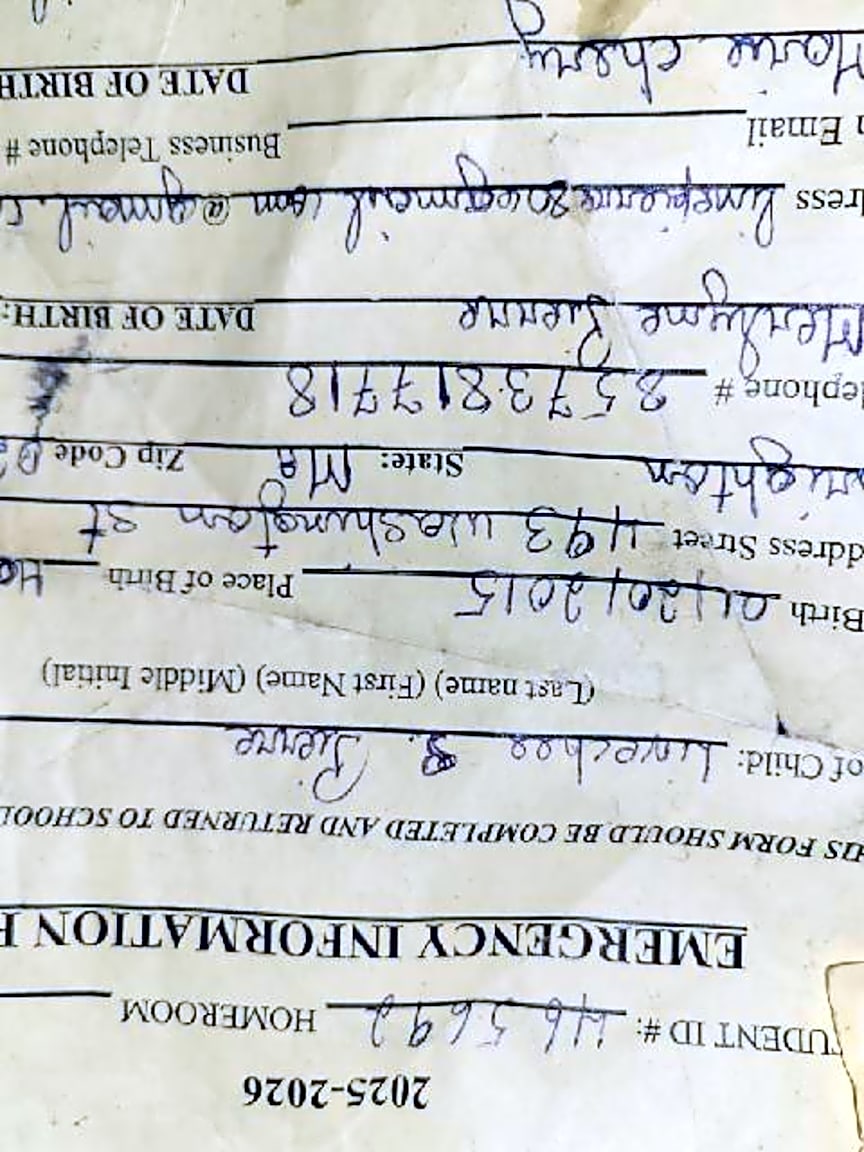 2025-2026
TUDENT ID #: 465692 HOMEROOM
EMERGENCY INFORMATION F
HIS FORM SHOULD BE COMPLETED AND RETURNED TO SCHOOL
of Child: S. Pierre
(Last name) (First Name) (Middle Initial)
Birth 01/20/2015 Place of Birth
ddress Street 493 Washington st
State: Ma Zip Code 0
lephone # 8573817718
Pierre DATE OF BIRTH:
ress
n Email Business Telephone #
Marie DATE OF BIRTH